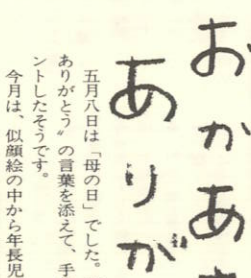 おかあ
ありが
五月八日は「母の日」でした。
ありがとう〟の言葉を添えて、手
ントしたそうです。
今月は、似顔絵の中から年長児